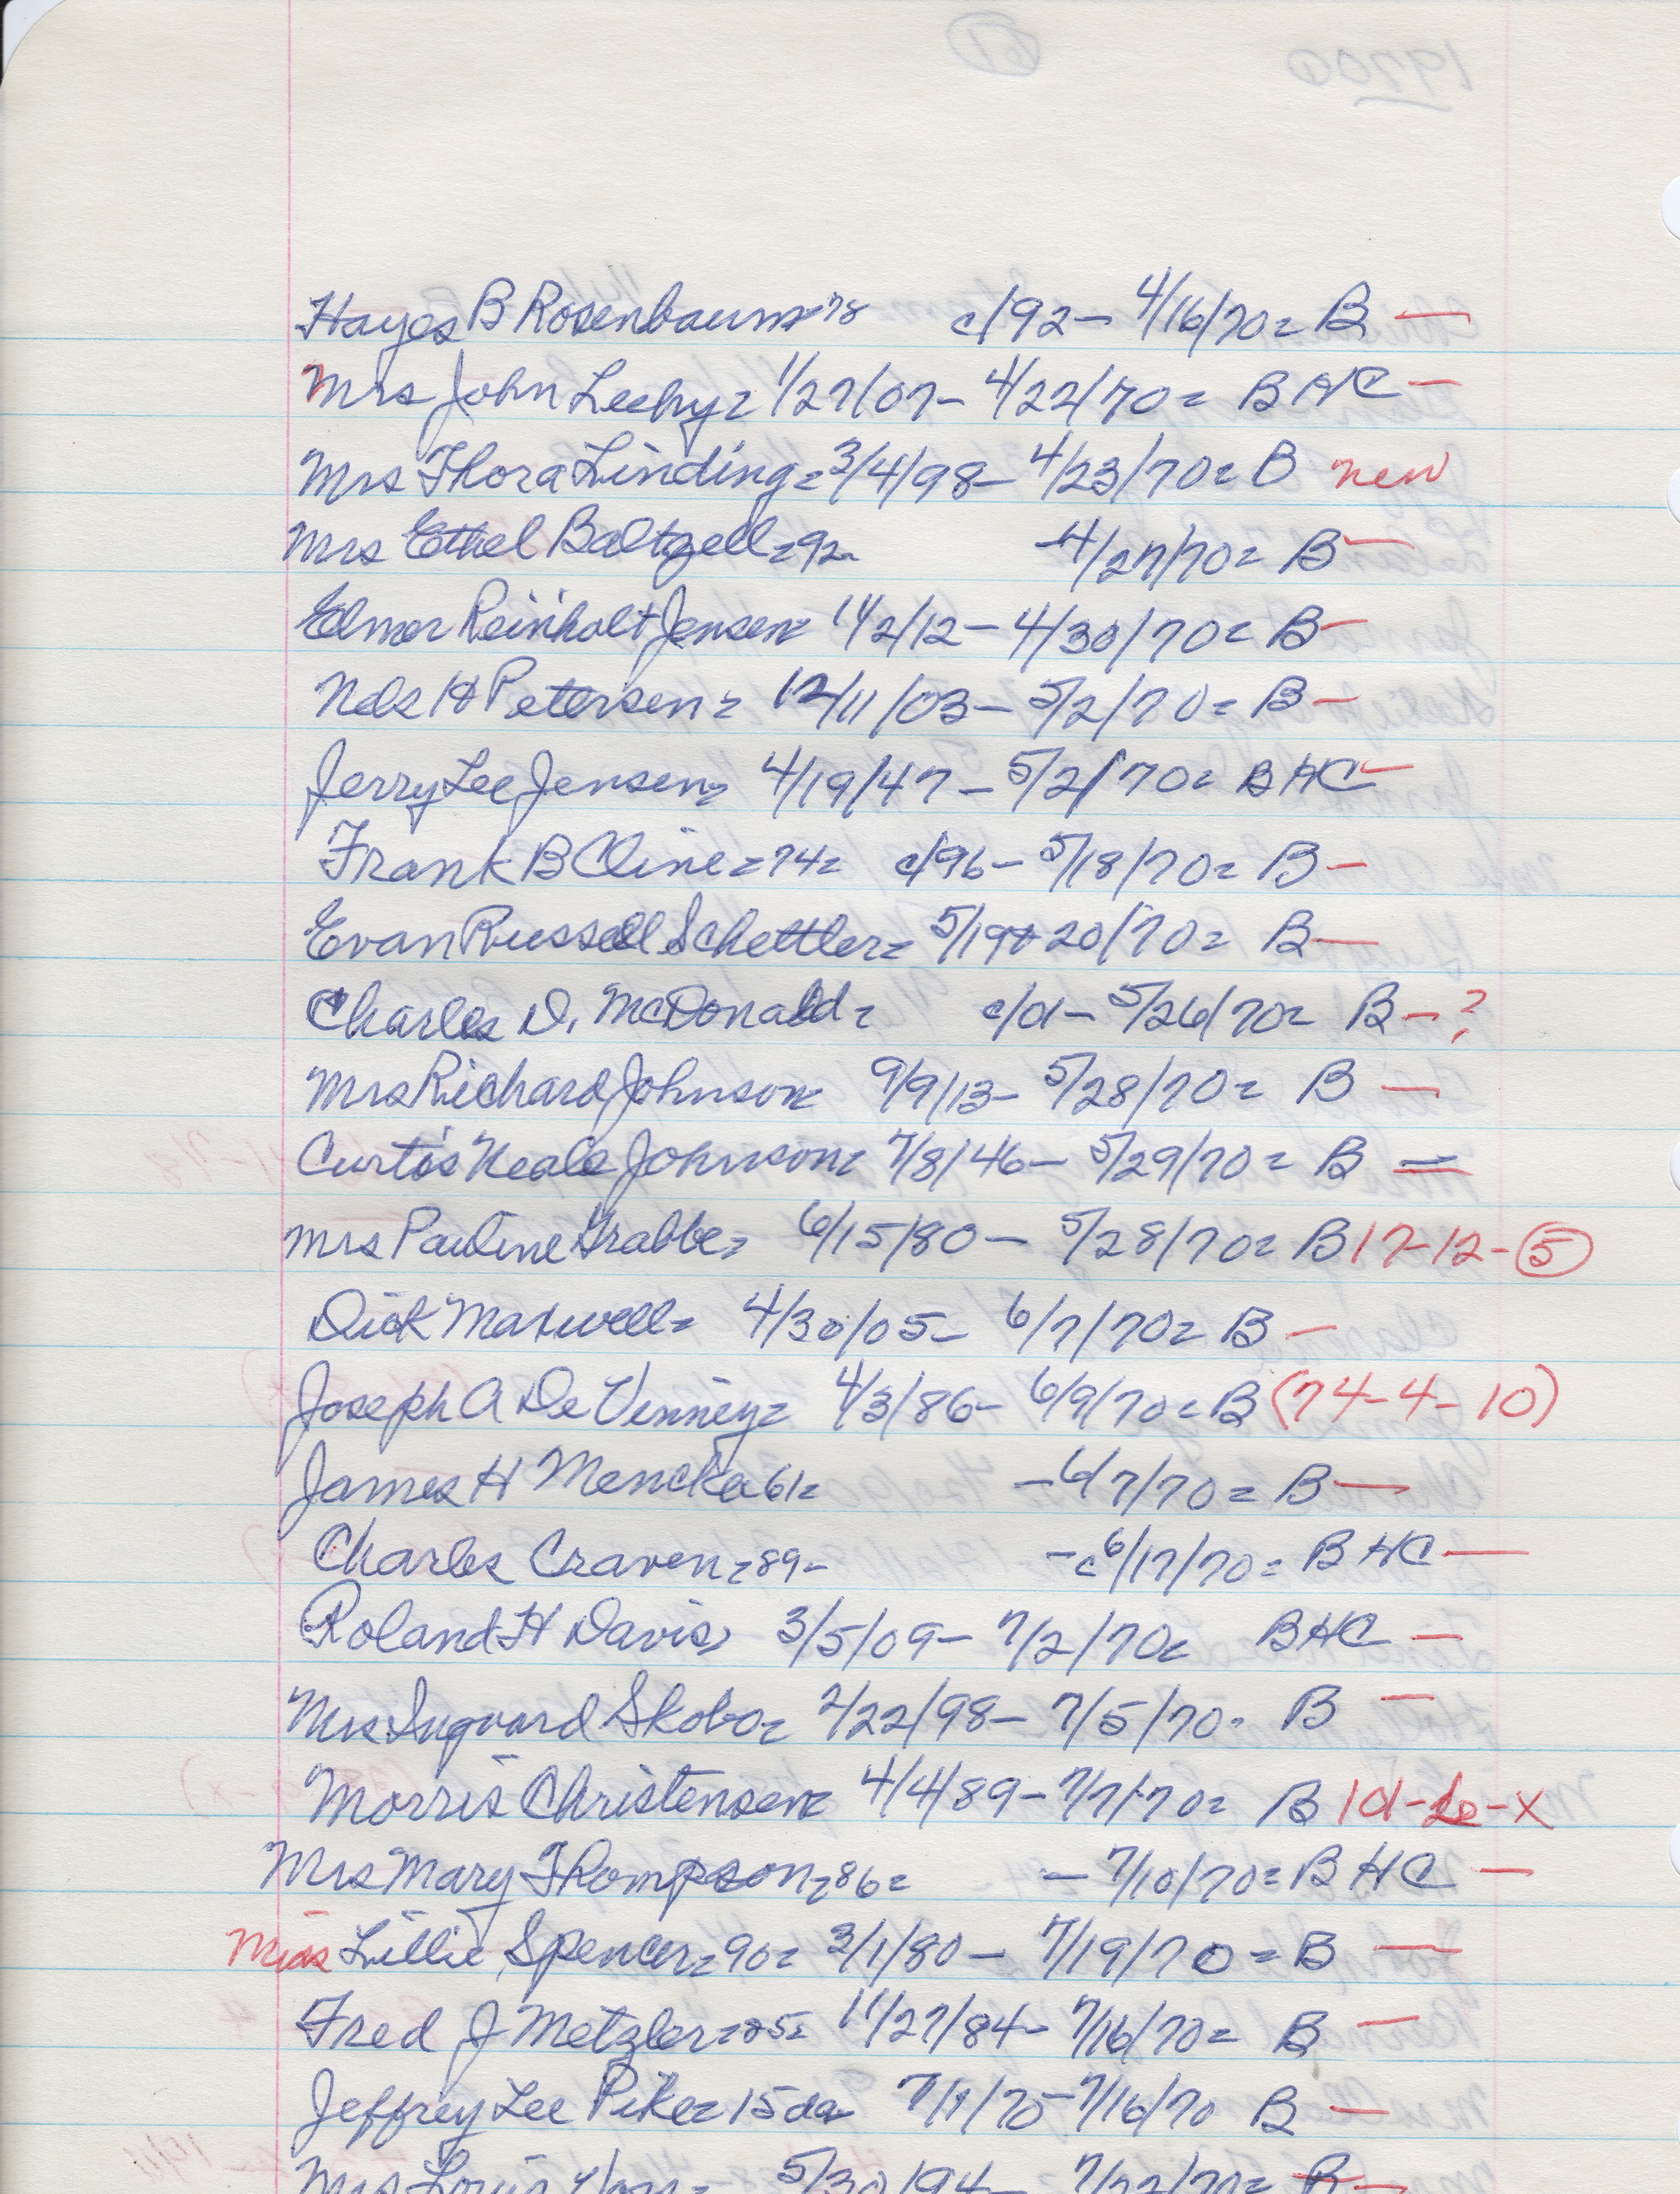 Hayes B Rosenbaum=78 c/92- 4/16/70= B —
Mrs John Leehy= 1/27/07- 4/22/70= BHC —
Mrs Thora Linding= 3/4/98- 4/23/70= B new
Mrs Ethel Baltzell=92- -4/27/70= B —
Elmer Reinholt Jensen= 1/2/12- 4/30/70= B —
Nels H Petersen= 12/11/03- 5/2/70= B —
Jerry Lee Jensen= 4/19/47- 5/2/70= BHC —
Frank B Cline=74= c/96- 5/18/70= B —
Evan Russell Schettler= 5/19+20/70= B —
Charles D. McDonald= c/01- 5/26/70= B — ?
Mrs Richard Johnson= 9/9/13- 5/28/70= B —
Curtis Neale Johnson= 7/8/46- 5/29/70= B —
Mrs Pauline Grabbe= 6/15/80- 5/28/70= B 17-12-5
Dick Maxwell= 4/30/05- 6/7/70= B —
Joseph A DeVenney= 4/3/86- 6/9/70= B (74-4-10)
James H Mencke 61= -6/7/70= B —
Charles Craven=89- -c6/17/70= BHC —
Roland H Davis= 3/5/09- 7/2/70= BHC —
Mrs Ingvard Skobo= 2/22/98- 7/5/70= B —
Morris Christensen= 4/4/89- 7/7/70= B 101- -x
Mrs Mary Thompson=86= - 7/10/70= BHC —
Miss Lillie Spencer=90= 3/1/80- 7/19/70= B —
Fred J Metzler=85= 11/27/84- 7/16/70= B —
Jeffrey Lee Pike= 15 da- 7/1/70- 7/16/70 B —
Mrs Louis 5/30/94- 7/22/70= B —